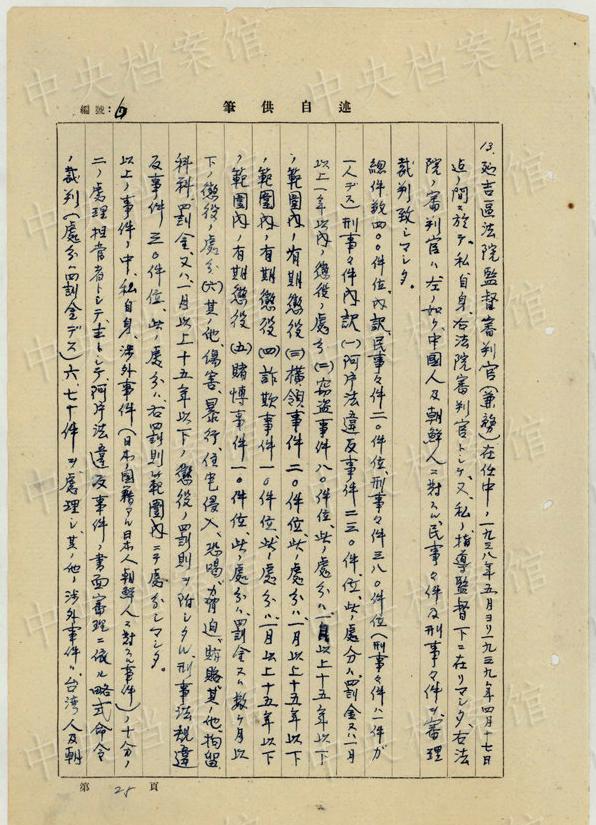 中央档案馆
述自供筆
編號:
13. 延吉區法院監督審判官(兼務)在任中、一九三八年五月ヨリ一九三九年四月十七日
迠ノ間ニ於テ私自身右法院審判官トシテ又、私ノ指導監督下ニ在リマシタ右法
院ノ審判官ハ左ノ如ク中國人及朝鮮人ニ対スル民事々件及刑事々件ヲ審理
裁判致シマシタ。
總件数四〇〇件位、内訳、民事々件二〇件位、刑事々件三八〇件位(刑事々件ハ一件ガ
一人デス)刑事々件内訳(一)阿片法違反事件二三〇件位、此ノ処分ハ罰金又ハ一月
以上一年以内ノ懲役ノ處分(二)窃盗事件八〇件位、此ノ處分ハ一月以上十五年以下
ノ範圍内ノ有期懲役(三)橫領事件二〇件位、此ノ處分ハ一月以上十五年以下
ノ範圍内ノ有期懲役(四)詐欺事件一〇件位此ノ處分ハ一月以上十五年以下
ノ範圍内ノ有期懲役(五)賭博事件一〇件位此ノ處分ハ罰金又ハ数ヶ月以
下ノ懲役ノ處分(六)其ノ他傷害、暴行、住宅侵入、恐喝、脅迫、賍賂其ノ他拘留
科料罰金又ハ一月以上十五年以下ノ懲役ノ罰則ヲ附シタル刑事法規違
反事件三〇件位、此ノ處分ハ右罰則ノ範圍内ニテ處分シマシタ。
以上ノ事件ノ中、私自身ハ渉外事件(日本ノ國籍アル日本人朝鮮人ニ対スル事件)ノ十分ノ
二ノ處理担當者トシテ主トシテ阿片法違反事件ノ書面審理ニ依ル略式命令
ノ裁判(處分ハ罰金デス)六、七十件ヲ處理シ、其ノ他ノ渉外事件ハ台湾人及朝
第 25 頁